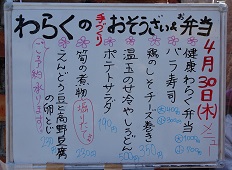 わらくの手づくりおそうざい&お弁当
4月30日(木)メニュー
健康わらく弁当
バラ寿司
鶏のしそチーズ巻き 350円
温玉のせ冷やしうどん 500円
ポテトサラダ 190円
筍の煮物 堀りたて 250円
えんどう豆と高野豆腐の卵とじ
ご予約承ります。